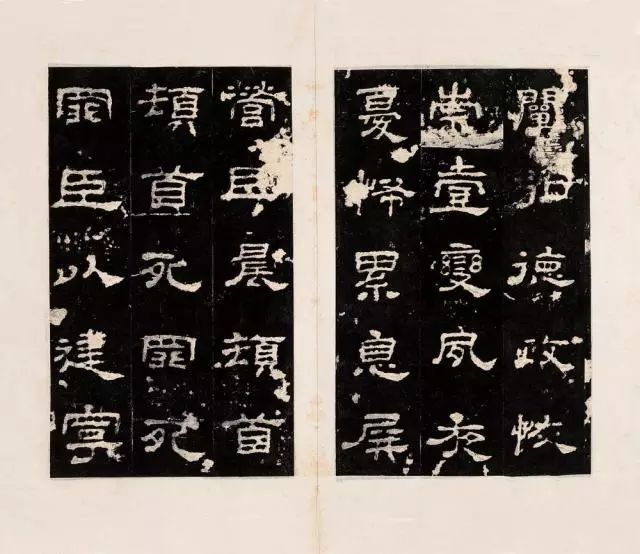 闡弘德政恢
崇壹變夙夜
憂怖累息屏
營臣晨頓首
頓首死罪死
罪臣以建寧